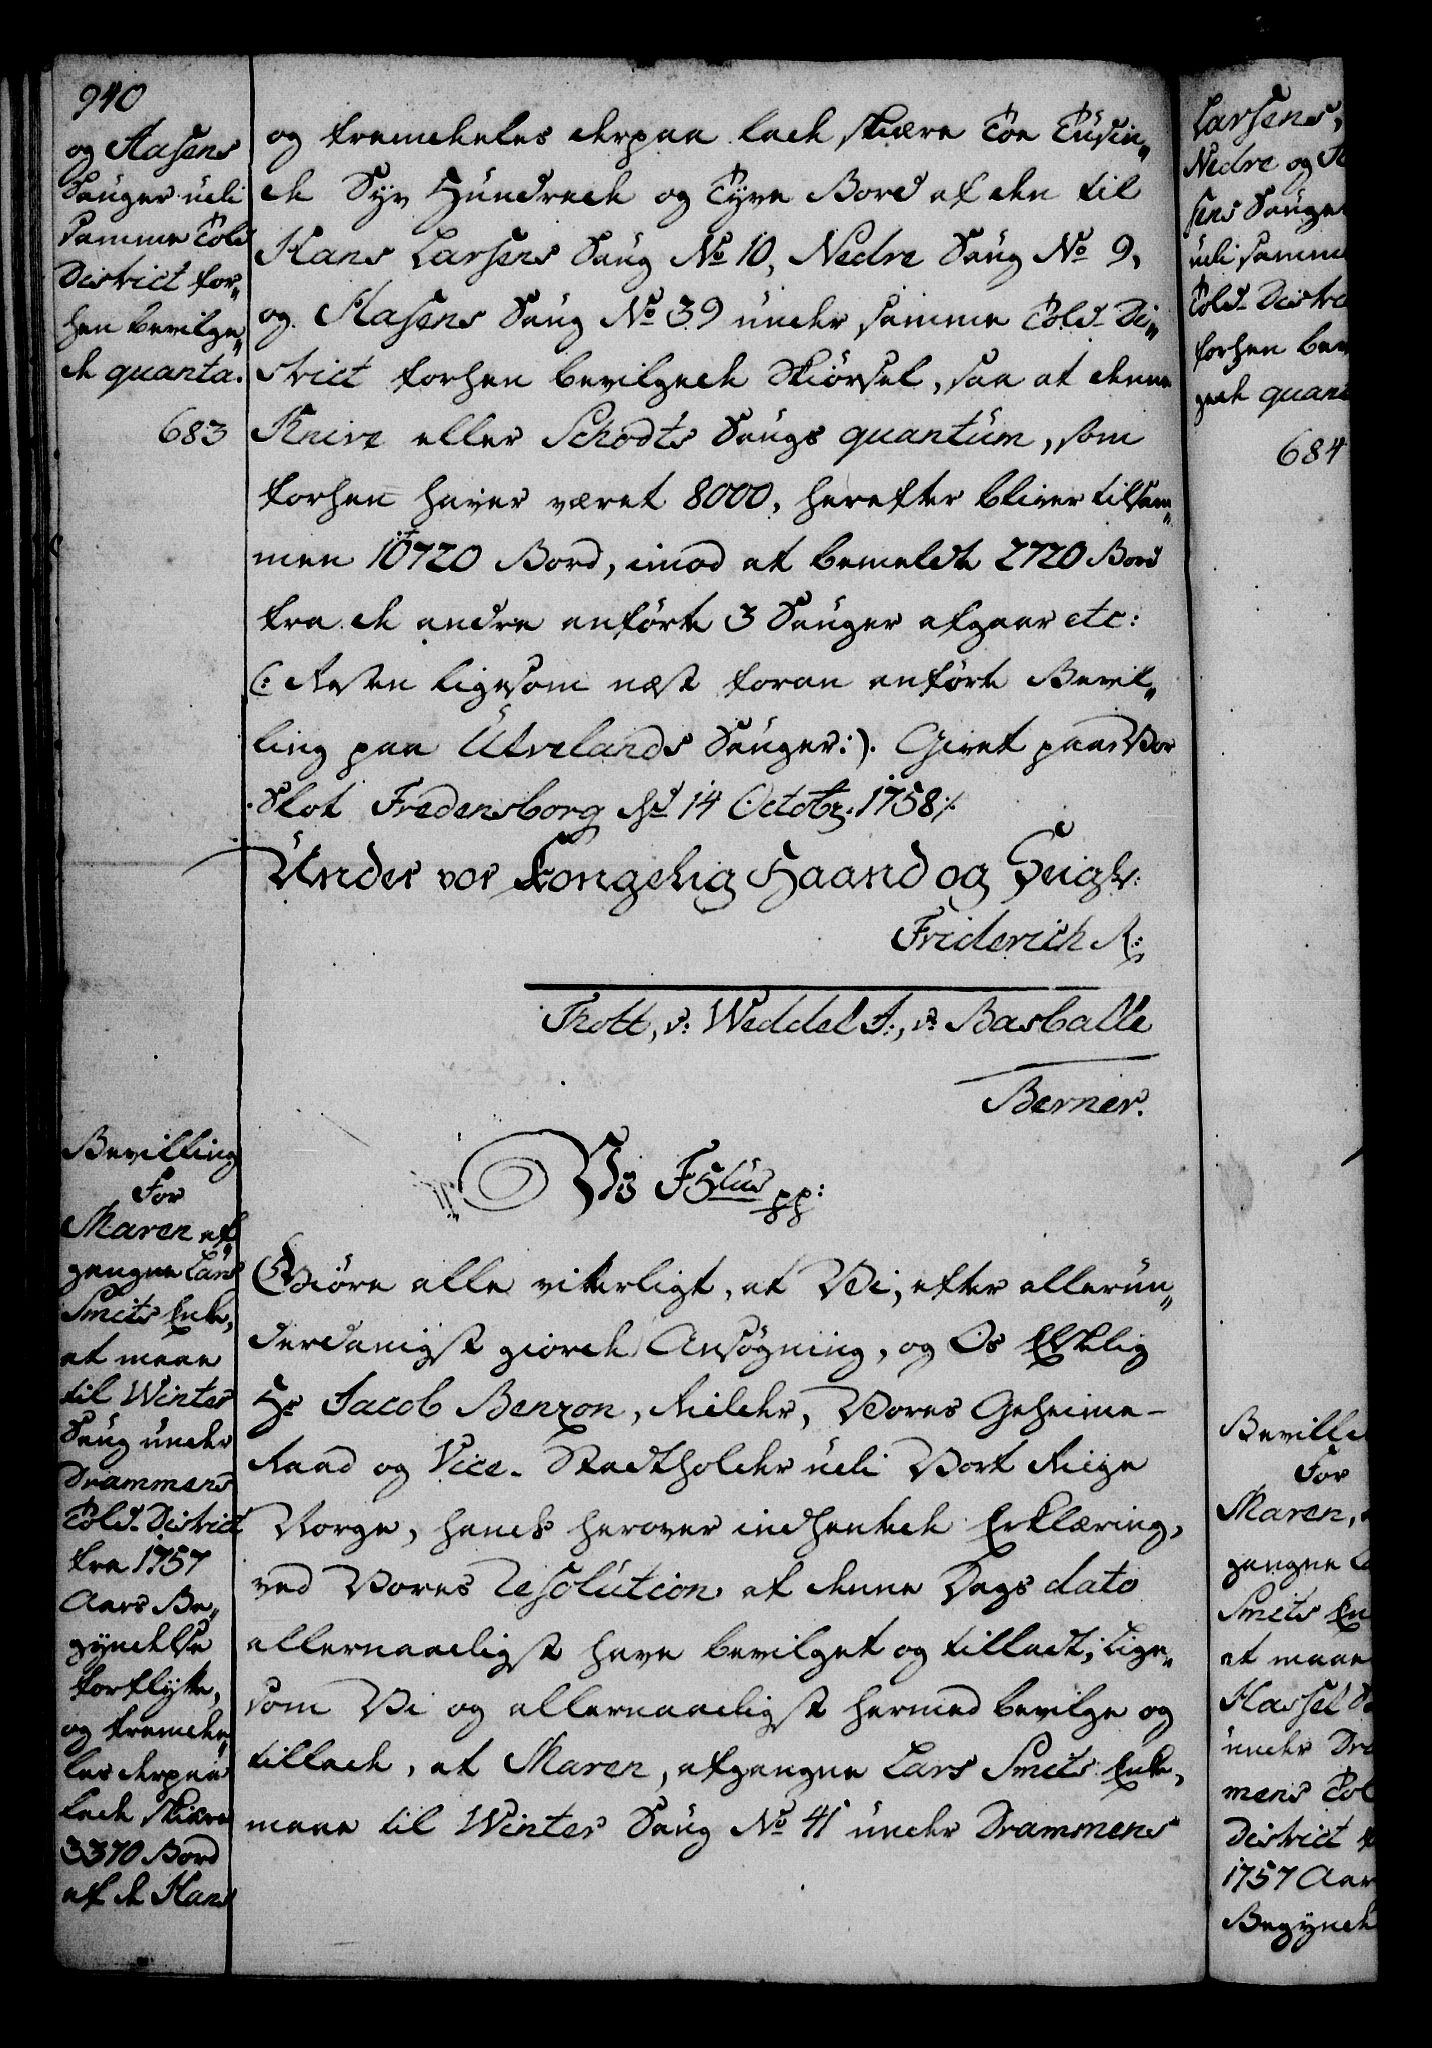 940
og Aasens
Sauger udi
samme Told
District for„
hen bevilge„
de quanta.
683
og fremdeeles derpaa lade skiære Toe Tusin„
de Syv Hundrede og Tyve Bord af den til
Hans Larsens Saug No 10, Nedre Saug No 9,
og Aasens Saug No 39 under samme Told-Di„
strict forhen bevilgede Skiørsel, saa at denne
Knive eller Schodts Saugs quantum, som
forhen haver været 8000, herefter bliver tilsam„
men 10720 Bord, imod at bemeldte 2720 Bord
fra de andre anførte 3 Sauger afgaar etc:
(: Resten ligesom næst foran anførte Bevil„
ling paa Utvelands Sauger:). Givet paa Vor
Slot Fredensborg dend 14 Octobr. 1758 ∕.
Under vor Kongelig Haand og Seigl:
Friderich R:
Trott, v: Weddel F:, v: Basballe
Berner.
Bevilling
for
Maren af„
gangne Lars
Smits Enke,
at maae
til Winter
Saug under
Drammens
Told-District
fra 1757
Aars Be„
gyndelse
forflytte,
og fremdee„
les derpaa
lade skiære
3370 Bord
af de Hans
Vo F 5tus pp:
Giøre alle vitterligt, at Vi, efter allerun„
derdanigst giorde Ansøgning, og Os Elskelig
Hr Jacob Benzon, Ridder, Vores Geheime-
Raad og Vice-Stadtholder udi Vort Rige
Norge, hands herover indhentede Erklæring,
ved Vores Resolution af denne Dags dato
allernaadigst have bevilget og tilladt, Lige„
som Vi og allernaadigst hermed bevilge og
tillade, at Maren, afgangne Lars Smits Enke,
maae til Winter Saug No 41 under Drammens
Larsens,
Nedre og
sens Sauge
udi samme
Told-Distri
forhen bev
gede quan
684
Bevilli
for
Maren,
gangne
Smits En
at maae
Hassel
under Dra
mens Tol
District
1757 Aar
Begynde